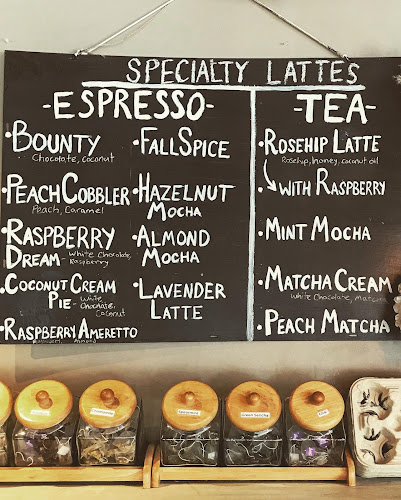 SPECIALTY LATTES
-ESPRESSO-
•BOUNTY
Chocolate, coconut
•PEACH COBBLER
Peach, Caramel
•RASPBERRY
DREAM - White Chocolate,
Raspberry
•COCONUT CREAM
PIE - White
Chocolate,
Coconut
•RASPBERRY AMERETTO
Almond
•FALL SPICE
•HAZELNUT
MOCHA
•ALMOND
MOCHA
•LAVENDER
LATTE
-TEA-
•ROSEHIP LATTE
Rosehip, honey, coconut oil
WITH RASPBERRY
•MINT MOCHA
•MATCHA CREAM
White Chocolate, Matcha
•PEACH MATCHA